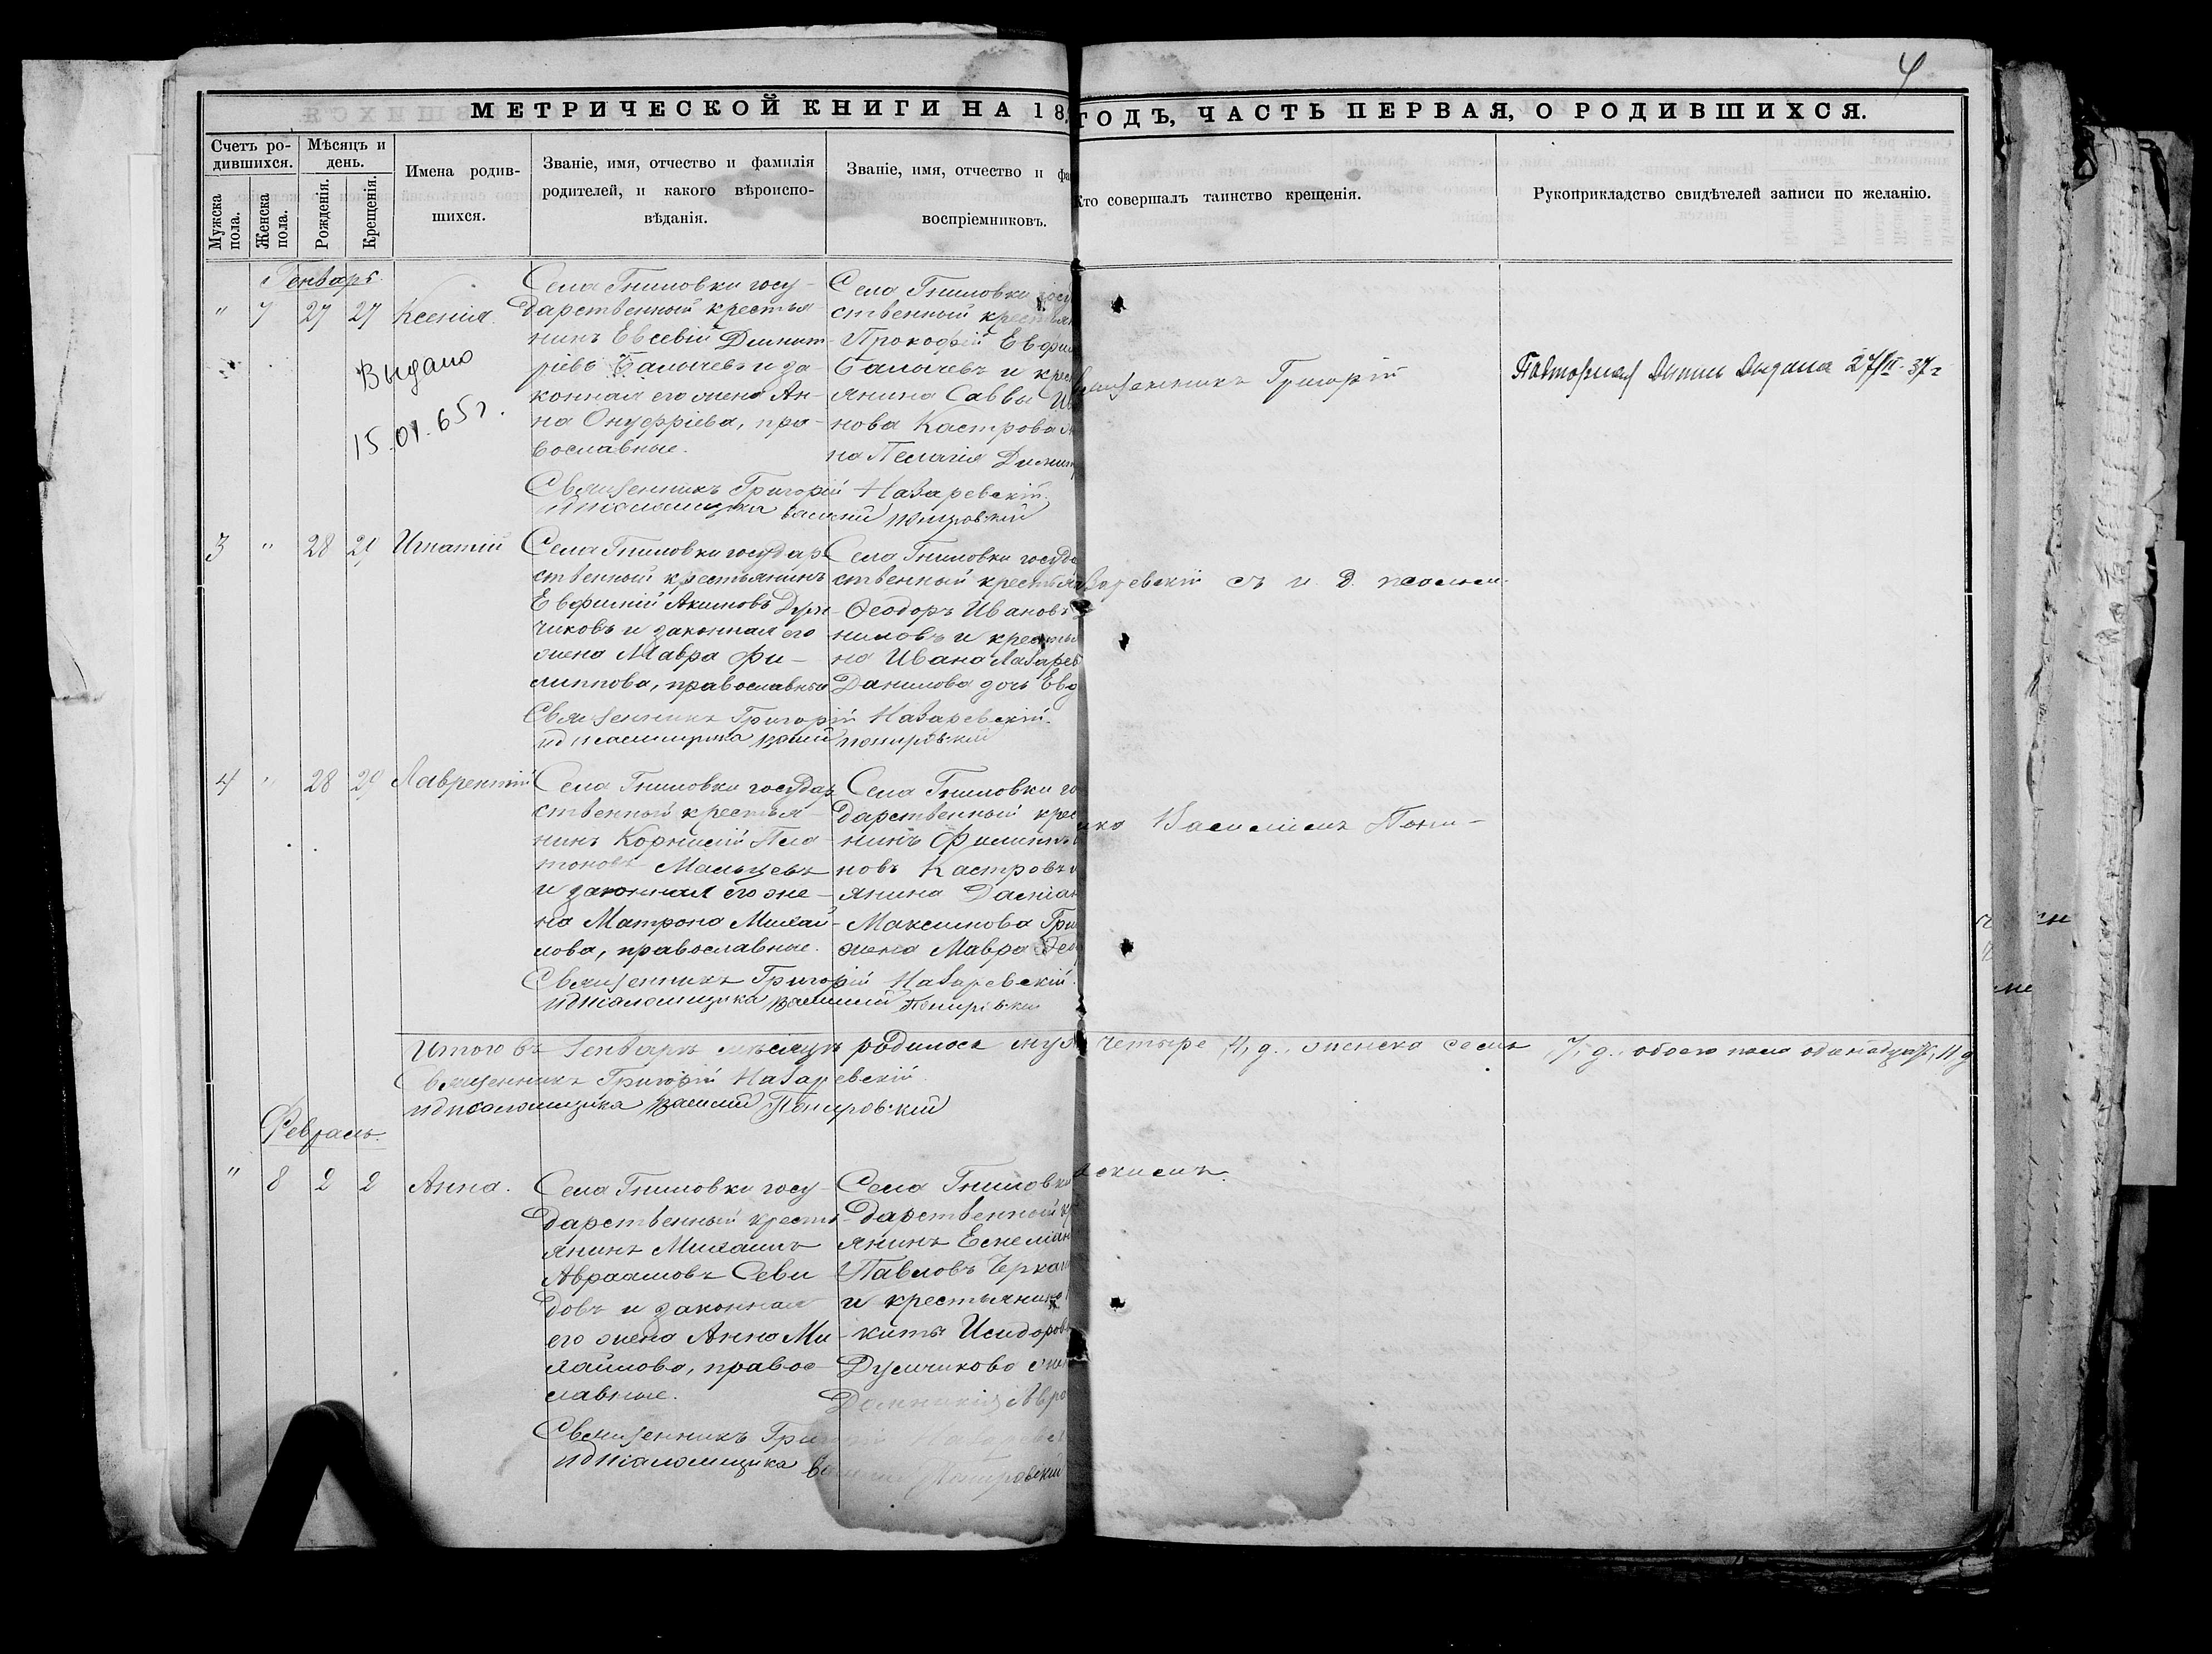 4
МЕТРИЧЕСКОЙ КНИГИ НА 18
ГОДЪ, ЧАСТЬ ПЕРВАЯ, О РОДИВШИХСЯ.
Счетъ ро-
дившихся.
Мужска пола.
Женска пола.
Мѣсяцъ и
день.
Рожденія.
Крещенія.
Имена родив-
шихся.
Званіе, имя, отчество и фамилія
родителей, и какого вѣроиспо-
вѣданія.
Званіе, имя, отчество и фа
воспріемниковъ.
Кто совершалъ таинство крещенія.
Рукоприкладство свидѣтелей записи по желанію.
Генварь.
" 7 27 27 Ксенія.
Выдано
15.01.65г.
Села Гниловки госу-
дарственный крестья-
нинъ Евсевій Димит-
ріевъ и за-
конная его жена Ан-
на Онуфріева, пра-
вославные.
Села Гниловки госу
ственный крестьян
Прокофій
и крес
янина Саввы Ив
нова Кастрова
на Пелагія Димит
Священникъ Григорій Назаревскій
псаломщика Василій
Священникъ Григорій
выдана 27/ - 37г
3 " 28 29 Игнатій
Села Гниловки государ-
ственный крестьянинъ
Евфимій Акимовъ Дум-
чиковъ и законная его
жена Мавра Фи-
липпова, православные
Села Гниловки госуда
ственный крестья
Ѳеодоръ Ивановъ
ниловъ и крестья
на Ивана Лазарев
Данилова дочь Евд
Священникъ Григорій Назаревскій.
псаломщика Василій
заревскій съ и. д. псалом-
4 " 28 29 Лаврентій
Села Гниловки государ
ственный крестья-
нинъ Корнилій Пла-
тоновъ Мальцевъ
и законная его же-
на Матрона Михай-
лова, православные.
Села Гниловки го
дарственный крес
нинъ Филиппъ
новъ Кастровъ и
янина Даміан
Максимова Гри
жена Мавра Ѳео
Священникъ Григорій Назаревскій.
псаломщика Василій
ика Василіемъ Пони-
Итого въ Генварѣ мѣсяцѣ родилось муж. четыре, 4, д., женска семь, 7, д. обоего пола одинадцать, 11 д
Священникъ Григорій Назаревскій.
псаломщика Василій Понировскій
Февраль.
" 8 2 2 Анна.
Села Гниловки госу-
дарственный кресть-
янинъ Михаилъ
Авраамовъ Севи
довъ и законная
его жена Анна Ми-
хайлова, право-
славные.
Села Гниловки
дарственный кр
янинъ
Павловъ Черка
и крестьянина
киты Исидоров
Думчикова жен
Домникія Авра
Священникъ Гри
псаломщика Василій Понировскій
вскимъ.